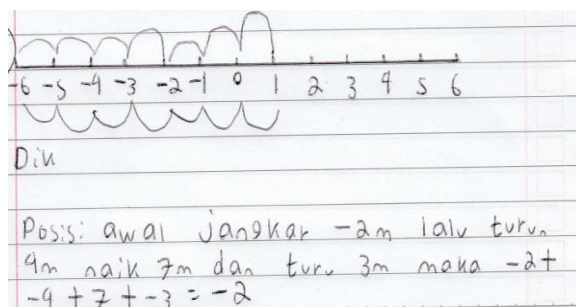 -6 -5 -4 -3 -2 -1 0 1 2 3 4 5 6
Dik
Posisi awal jangkar -2m lalu turun
4m naik 7m dan turu 3m maka -2+
-4+7+-3=-2